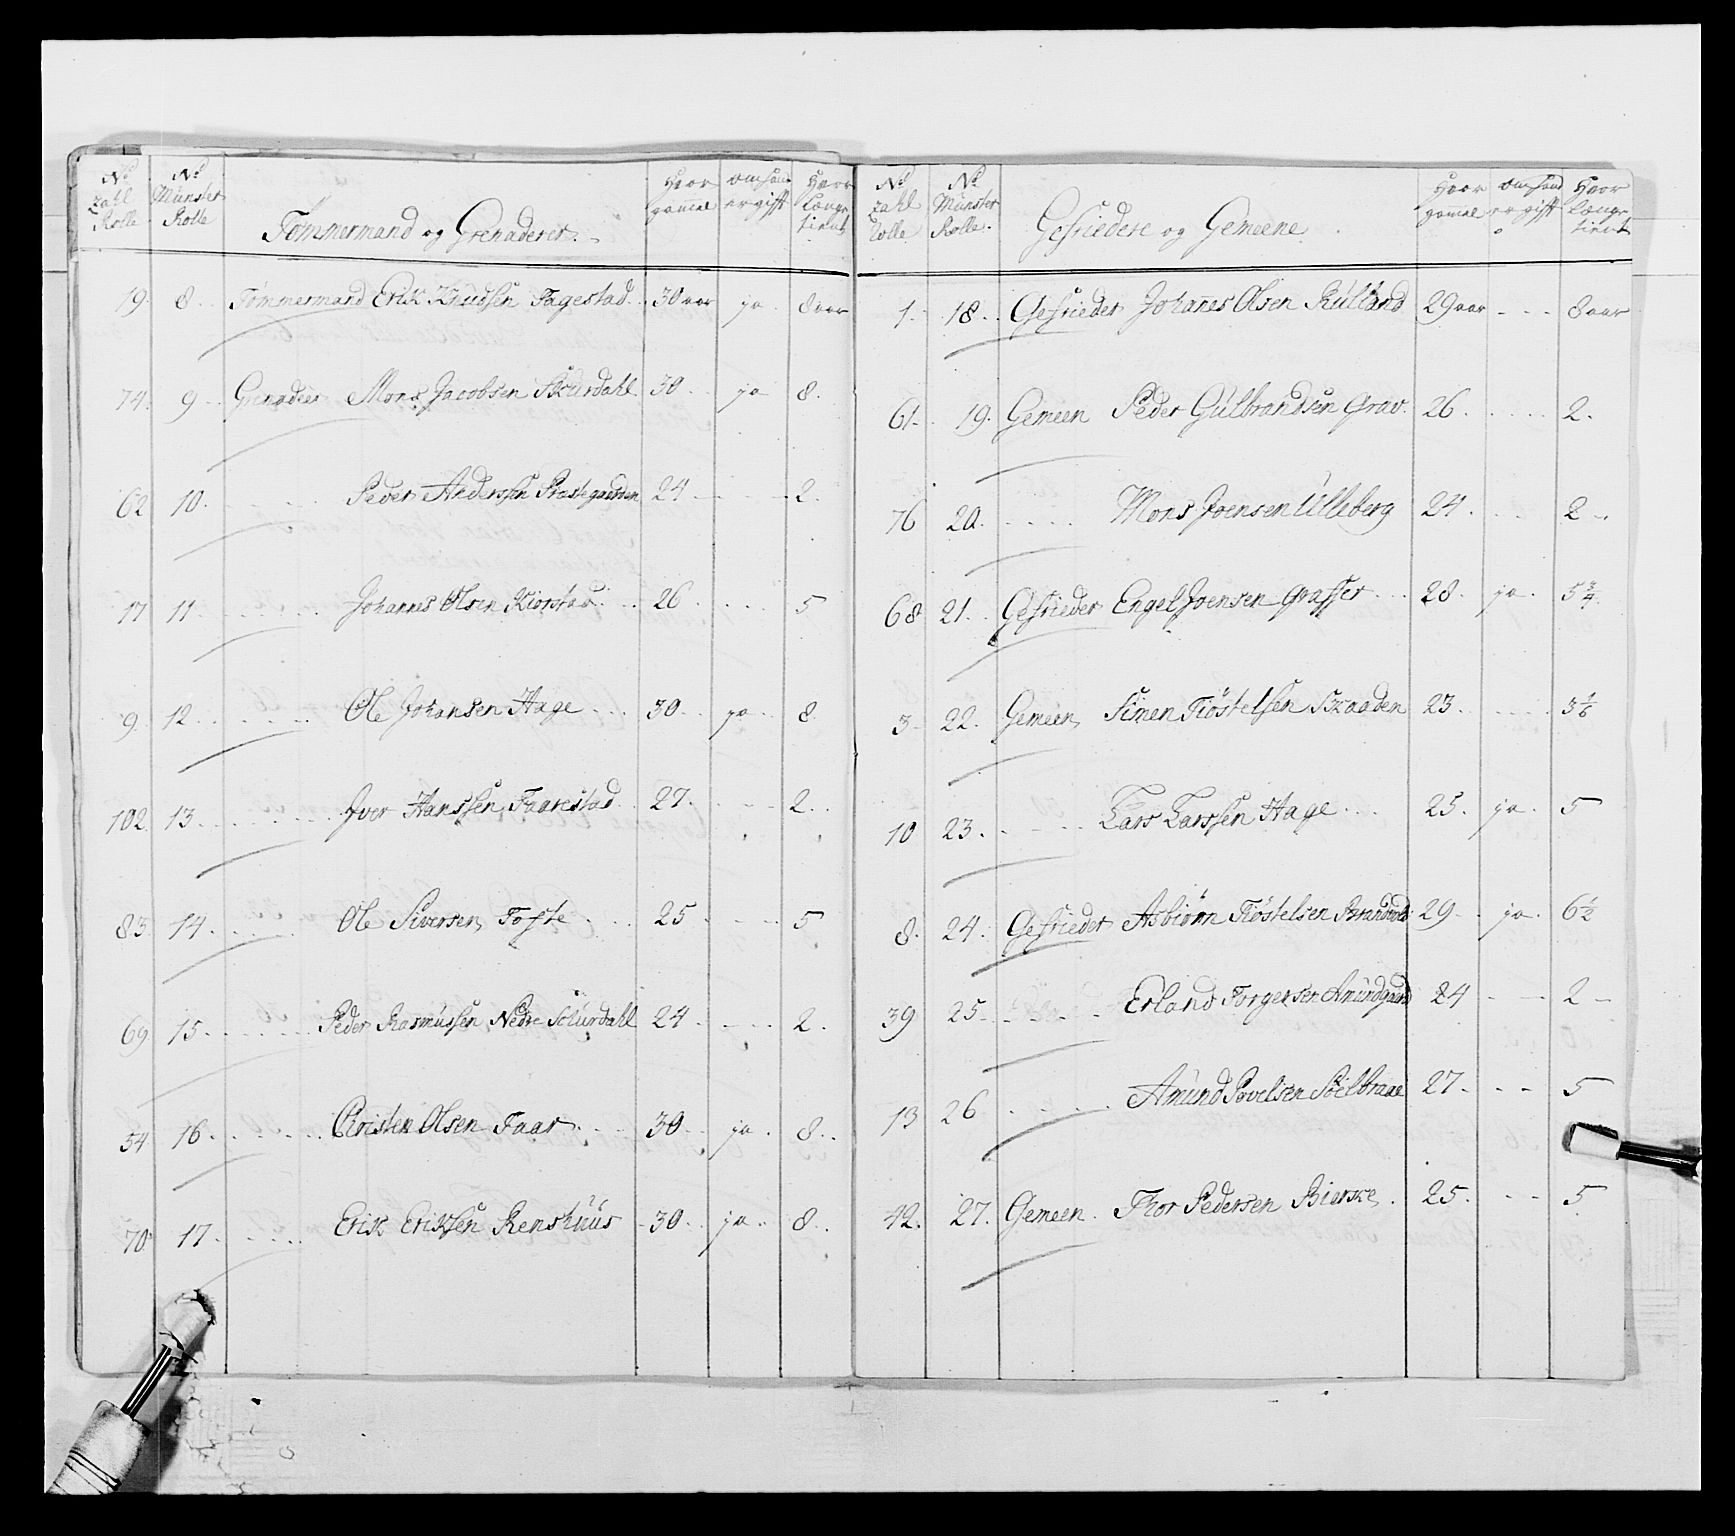 No zahl Rolle
No Mùnster Rolle
Tømmermand og Grenaderer.
Hvor gammel
om hand er gift
Hvor Længe tient
19 8 Tømmermand Erik Knudsen Fagestad 30 aar ja 8 aar
74 9 Grenadeer Mons Jacobsen Skurdahl 30 ja 8.
62 10 Peder Anderssen Præstegaarden 24 2.
17 11 Johannes Olsen Kiorstad 26 5
9 12 Ole Johansen Hage 30 ja 8
102 13 Iver Hanssen Faarestad 27. 2.
83 14 Ole Siversen Tofte 25 5
69 15 Peder Rasmùssen Nedre Schùrdahl 24 2.
54 16 Christen Olsen Faar 30 ja 8.
70 17 Erik Eriksen Renshuus 30 ja 8.
No zahl Rolle
No Mùnster Rolle.
Gefriedere og Gemeene
Hvor gammel
om hand er gift
Hvor Længe tient
1 18 Gefrieder Johanes Olsen Rùlland 29 aar 8 aar
61 19. Gemeen Peder Gùlbrandsen Grav 26 2.
76 20. Mons Joensen Ulleberg 24 2
68 21 Gefrieder Engel Joensen 28 ja 5 3/4
3 22. Gemeen Simen Tiøstelsen Braaden 23 3 1/6
10 23. Lars Larssen Hage 25. ja 5
8. 24. Gefrieder Asbiørn Tiøstelsen 29 ja 6 1/2
39 25 Erland Torgersen Amundgaard 24 2
13 26 Amund Povelsen 27 5
42. 27. Gemeen Thor Pedersen Bierke 25. 5